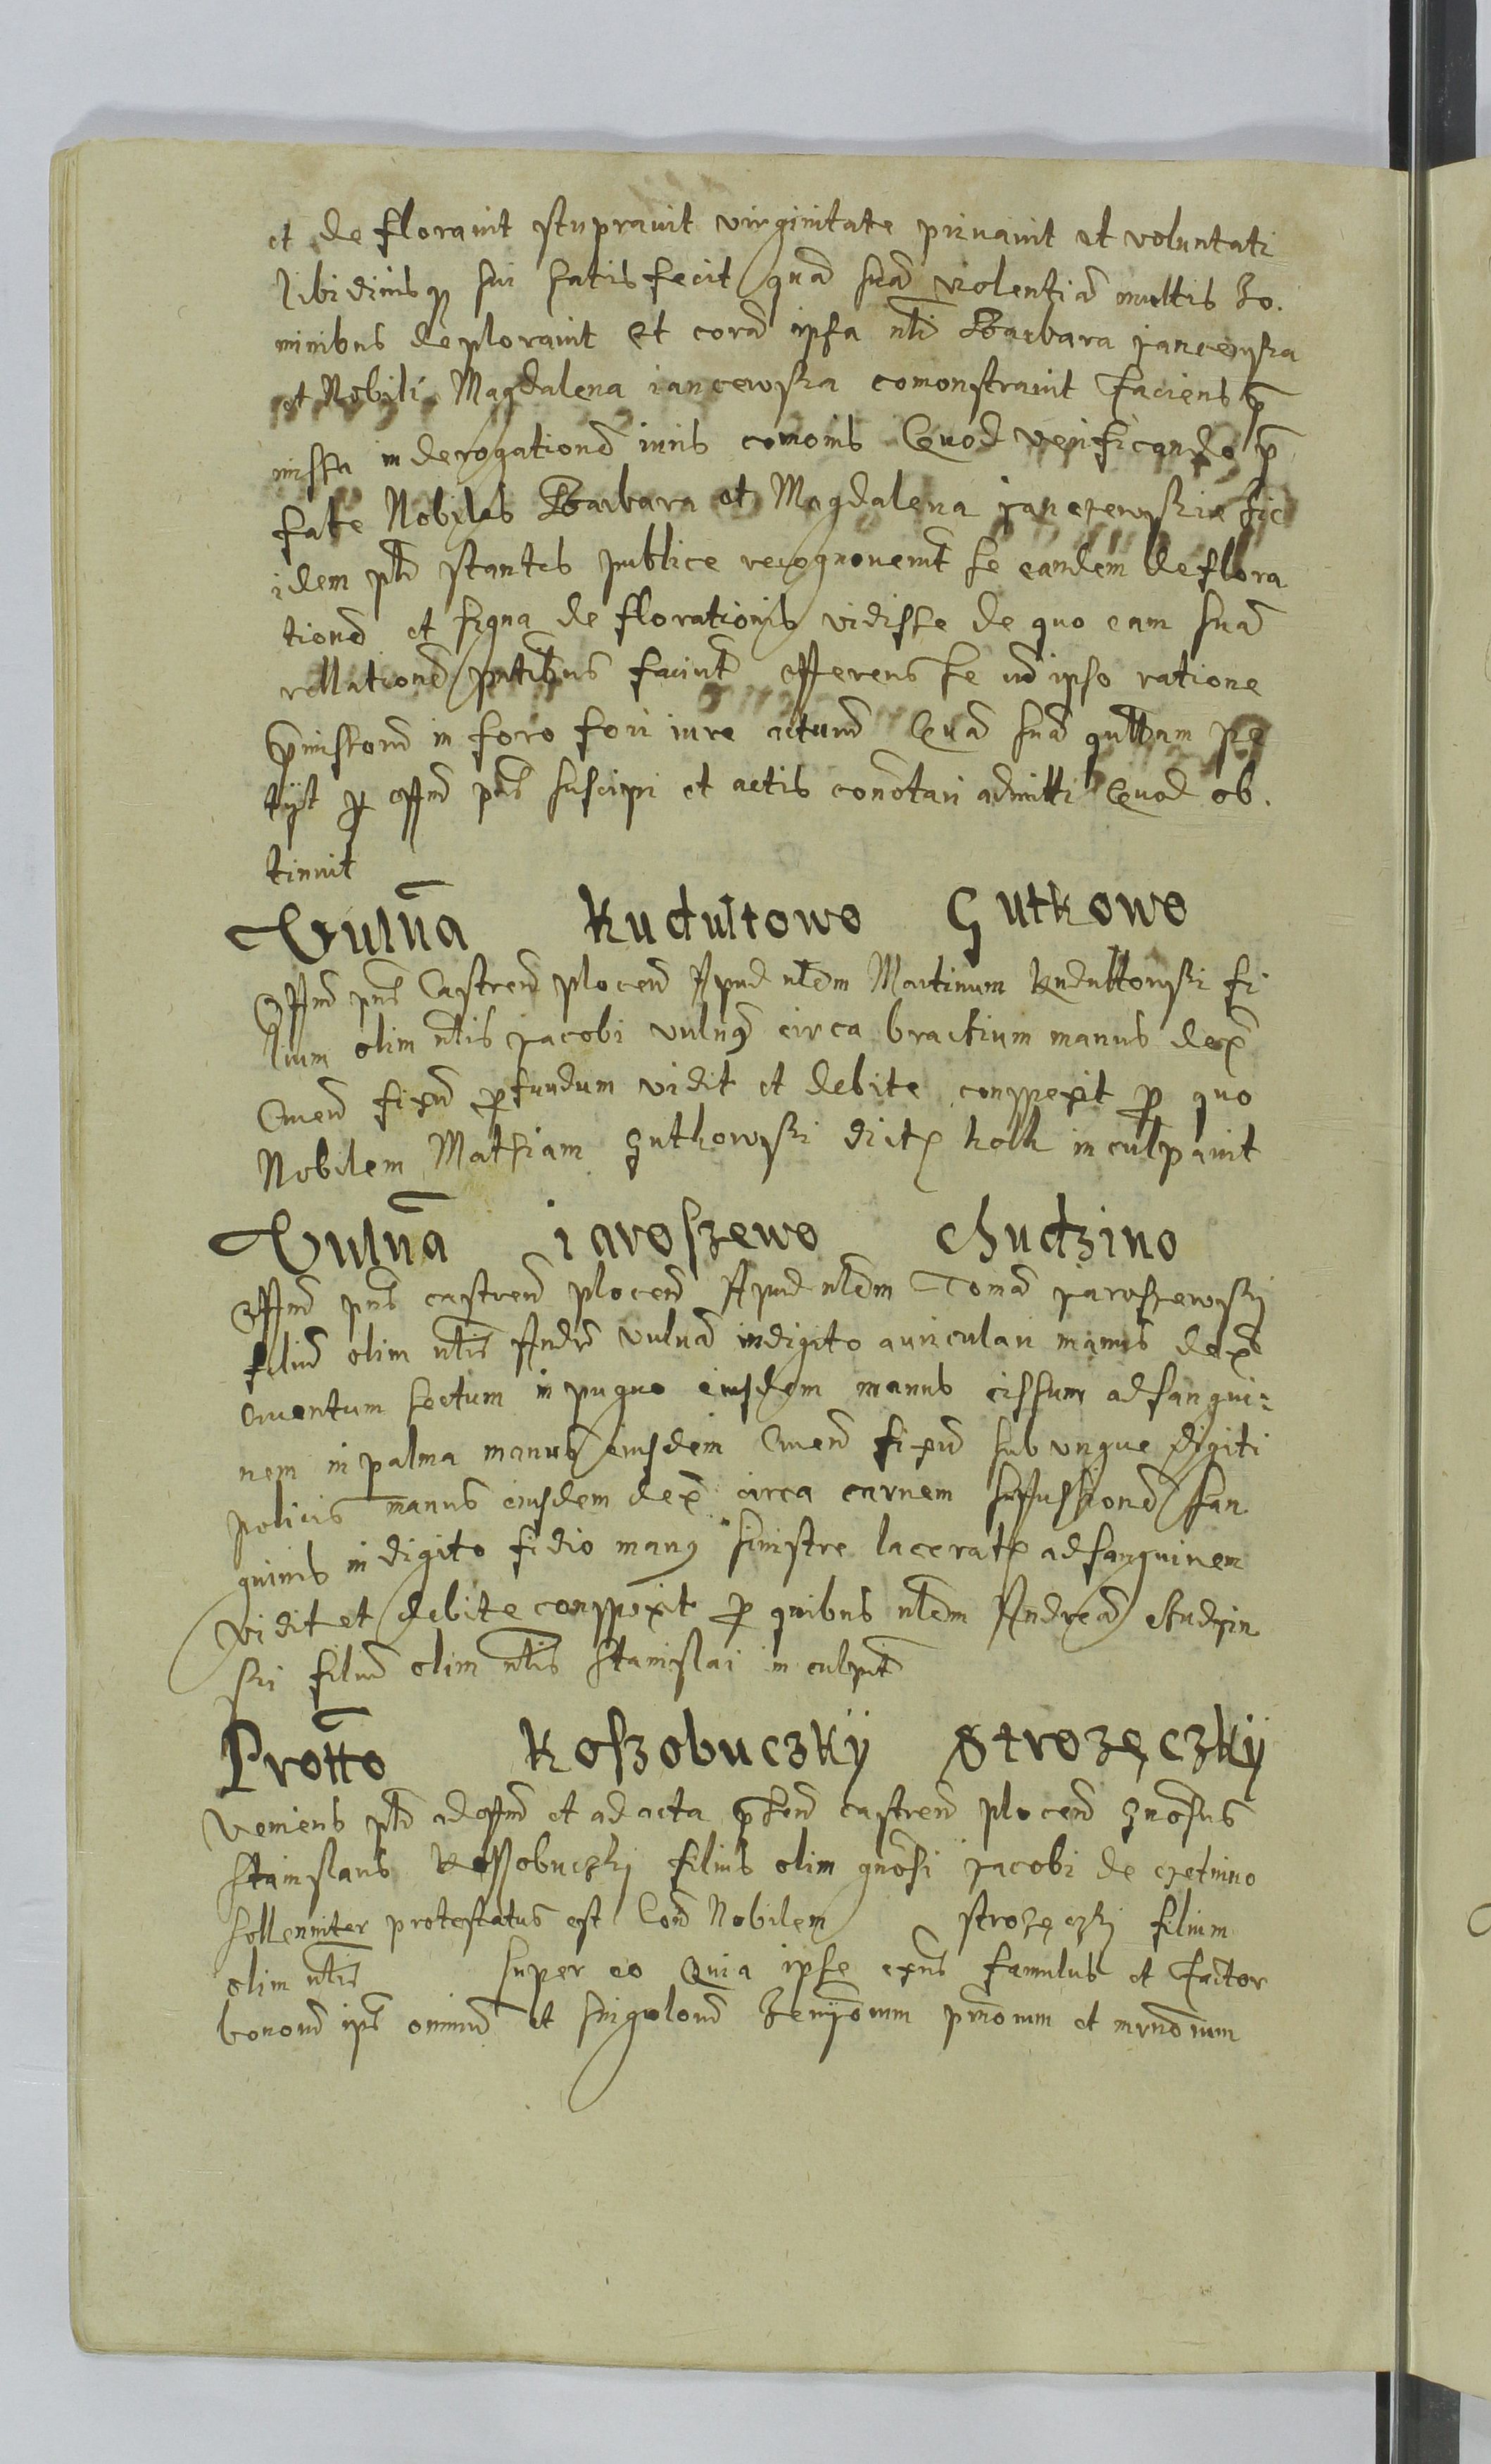 et de floravit stupravit virginitate privavit et voluntati
libidinisq sui satisfecit quā suā violentiā multis ho.
minibus deploravit Et corā ipsa nli Barbara jancewska
et Nobili Magdalena iancewska comonstravit Faciens p̄
missa in derogationē iuris comoīs Quod verificando p̄
fate Nobiles Barbara et Magdalena janczewskie hic
idem płr stantes publice recognoverūt se eandem deflora
tionē et signa de florationis vidisse de quo eam suā
rellationē pntibus faciūt offerens se cū ipso ratione
p̄missorū in foro fori iure acturā Quā suā qullam pe
tyt p offm pns suscipi et actis conotari admitti Quod ob.
tinuit
Vulnā Kudultowo Gutkowo
Offm pns Castren plocen Apud nlem Martinum Kudultowski fi
lium olim nlis jacobi vulnꝰ circa bractium manus dex
Cruen fixū pfundum vidit et debite conspexit p quo
Nobilem Mathiam Gutkowski dict kolk in culpavit
Vulnā iaroszewo Chudzino
Offm pns castren plocen Apud nlem Tomā jaroszewski
filiū olim nlis Andre vulnā in digito auriculari manus dex
Cruentum sectum in pugno eiusdem manus cissum ad sangui=
nem in palma manus eiusdem Cruen fixū sub ungue digiti
policis manus eiusdem dex circa carnem suffussionē san
guinis in digito sidio manꝰ sinistre lacerat ad sanguinem
vidit et debite conspexit p quibus nlem Andreā Chudzin
ski filiū olim nlis Stanislai in culpt
Protto Koszobuczky Strozęczky
Veniens płr ad offm et ad acta p̄sen castren plocen gnosus
Stanislaus Koszobuczki filius olim gnosi jacobi de czetnino
sollenniter protestatus est Con Nobilem strozęczki filium
olim nlis super eo Quia ipse exns famulus et Factor
bonorū ips omniū et singulorū